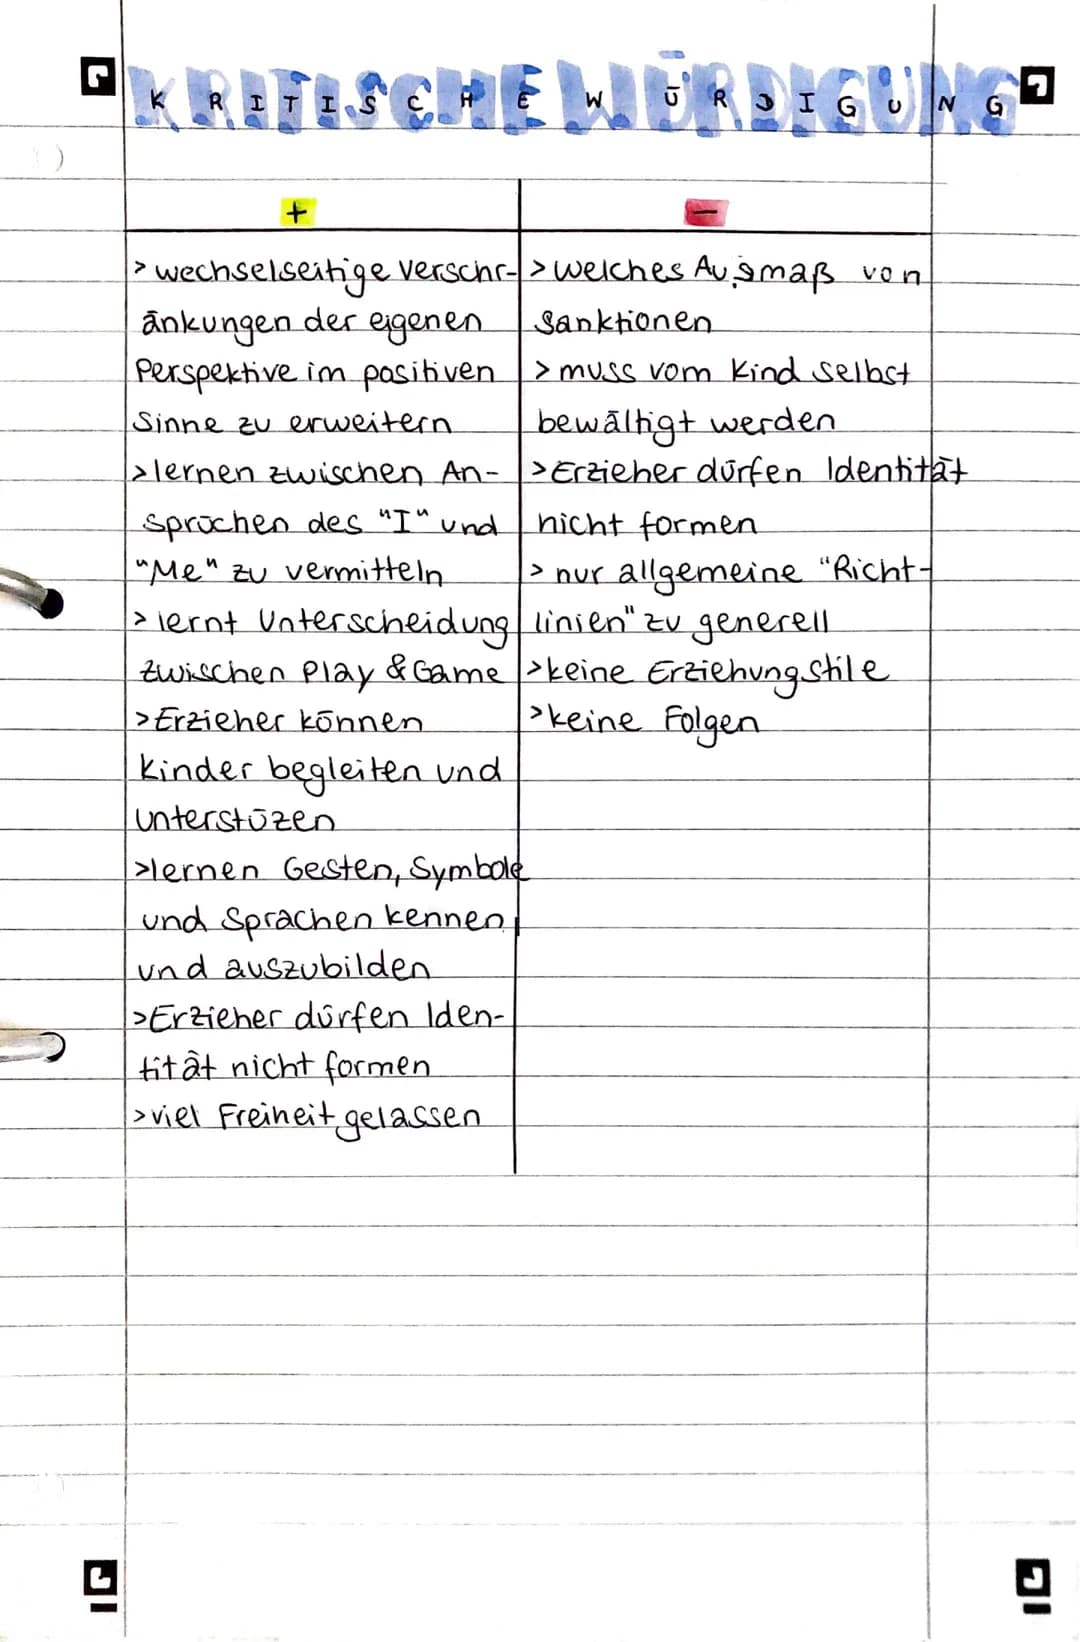 KRITISCHE WÜRDIGUNG
+
> wechselseitige Verschr-
änkungen der eigenen
Perspektive im positiven
Sinne zu erweitern
> lernen zwischen An-
sprüchen des "I" und
"Me" zu vermitteln
> lernt Unterscheidung
zwischen Play & Game
> Erzieher können
Kinder begleiten und
unterstüzen
> lernen Gesten, Symbole
und Sprachen kennen
und auszubilden
> Erzieher dürfen Iden-
tität nicht formen
> viel Freiheit gelassen
-
> welches Ausmaß von
Sanktionen
> muss vom Kind selbst
bewältigt werden
> Erzieher dürfen Identität
nicht formen
> nur allgemeine "Richt-
linien" zu generell
> keine Erziehungstile
> keine Folgen